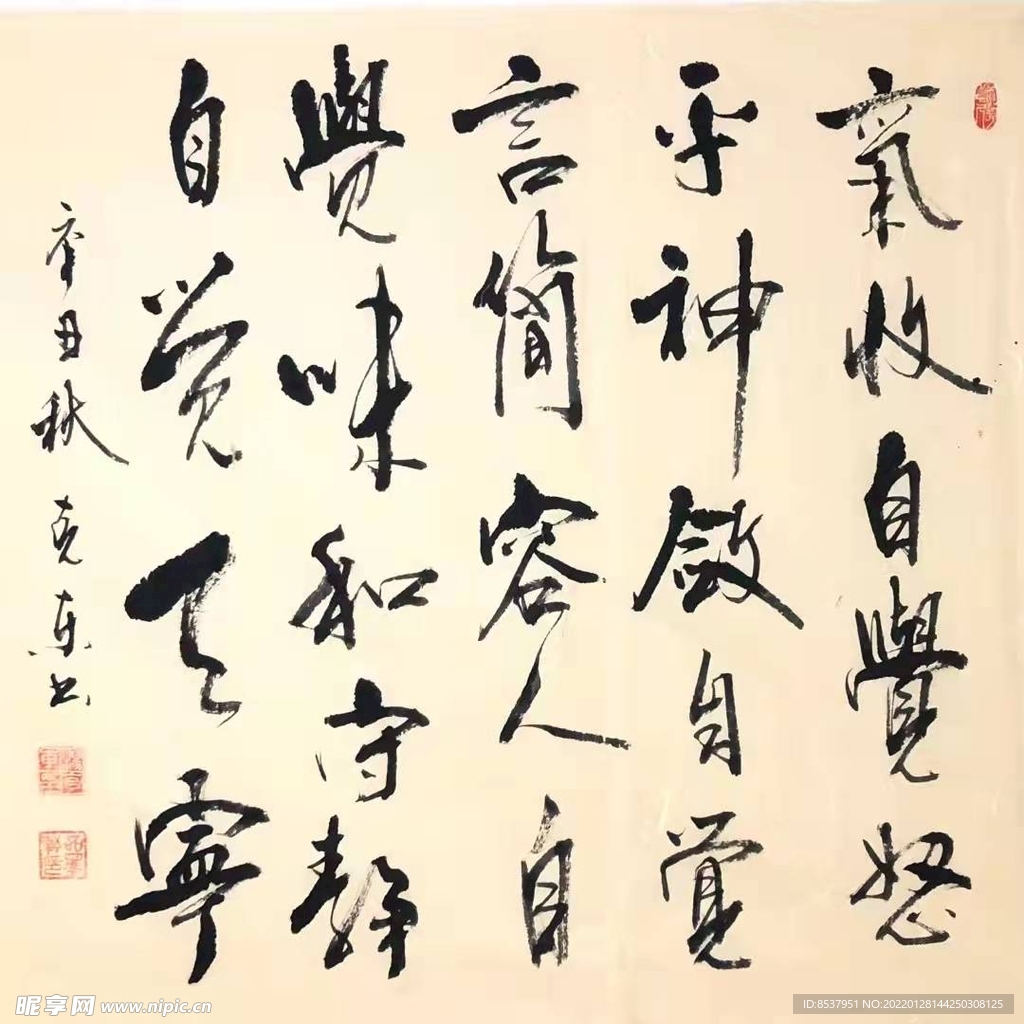 氣收自覺怒
平神斂自觉
言簡容人自
覺味和守靜
自觉天寧
辛丑秋 克东书
昵享网 www.nipic.cn
ID:8537951 NO:20220128144250308125